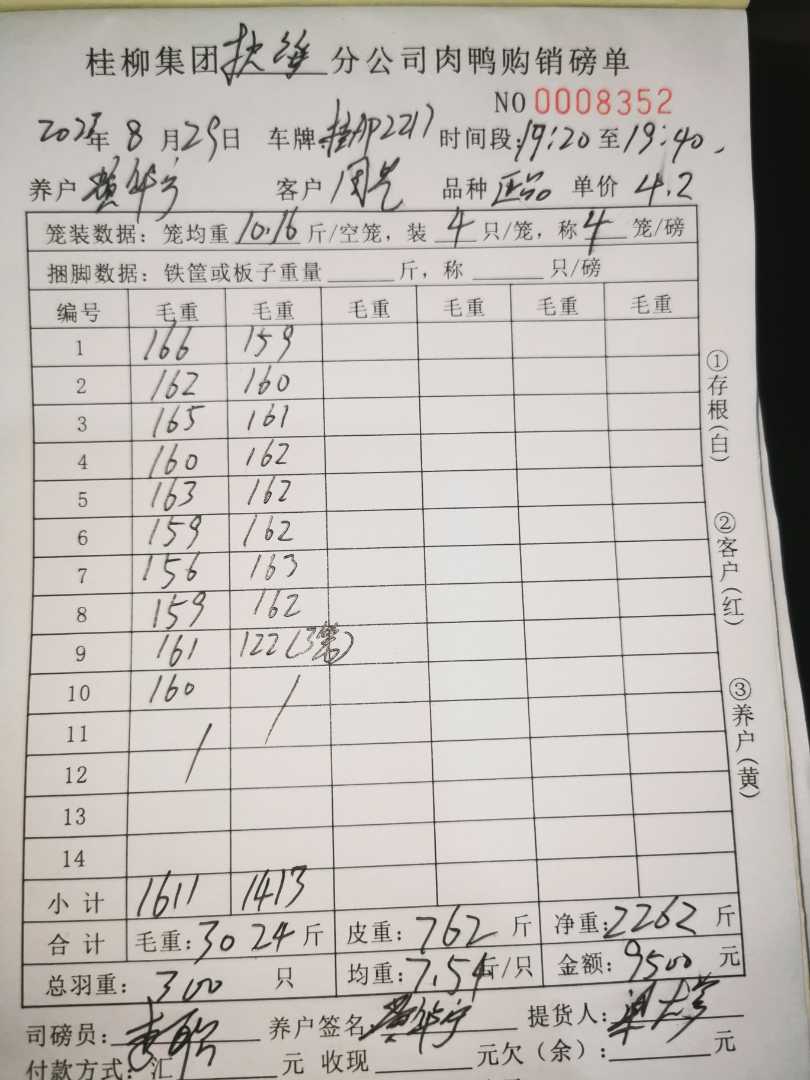 桂柳集团扶绥分公司肉鸭购销磅单
NO 0008352
年 8 月 29 日 车牌:桂AP2217 时间段:19:20 至 19:40.
养户 黄华宁 客户 周 品种 单价 4.2
笼装数据：笼均重 10.16 斤/空笼，装 4 只/笼，称 4 笼/磅
捆脚数据：铁筐或板子重量 斤，称 只/磅
编号 毛重 毛重 毛重 毛重 毛重 毛重
1 166 159
2 162 160
3 165 161
4 160 162
5 163 162
6 159 162
7 156 163
8 159 162
9 161 122(3笼)
10 160 /
11 /
12
13
14
小计 1611 1413
合计 毛重:3024 斤 皮重:762 斤 净重:2262 斤
总羽重: 300 只 均重:7.54 斤/只 金额:9500 元
司磅员: 养户签名 黄华宁 提货人:
付款方式:汇 元 收现 元欠（余）: 元
①存根(白)
②客户(红)
③养户(黄)